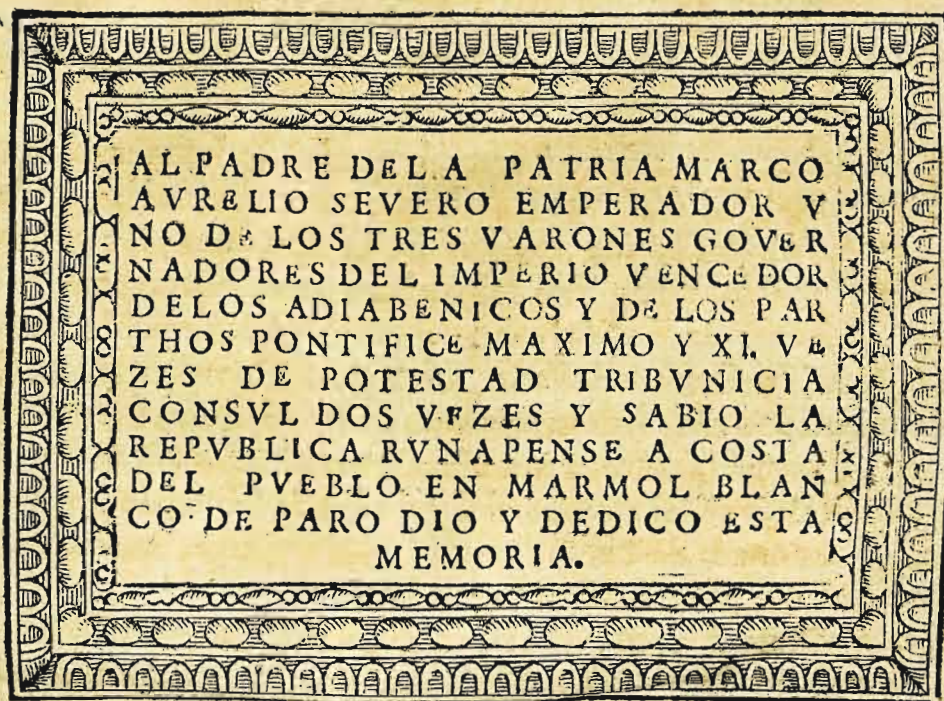 AL PADRE DEL A PATRIA MARCO
AVRELIO SEVERO EMPERADOR V
NO DE LOS TRES VARONES GOVER
NADORES DEL IMPERIO VENCEDOR
DELOS ADIABENICOS Y DE LOS PAR
THOS PONTIFICE MAXIMO Y XI. VE
ZES DE POTESTAD TRIBVNICIA
CONSVL DOS VEZES Y SABIO LA
REPVBLICA RVNAPENSE A COSTA
DEL PVEBLO EN MARMOL BLAN
CO DE PARO DIO Y DEDICO ESTA
MEMORIA.